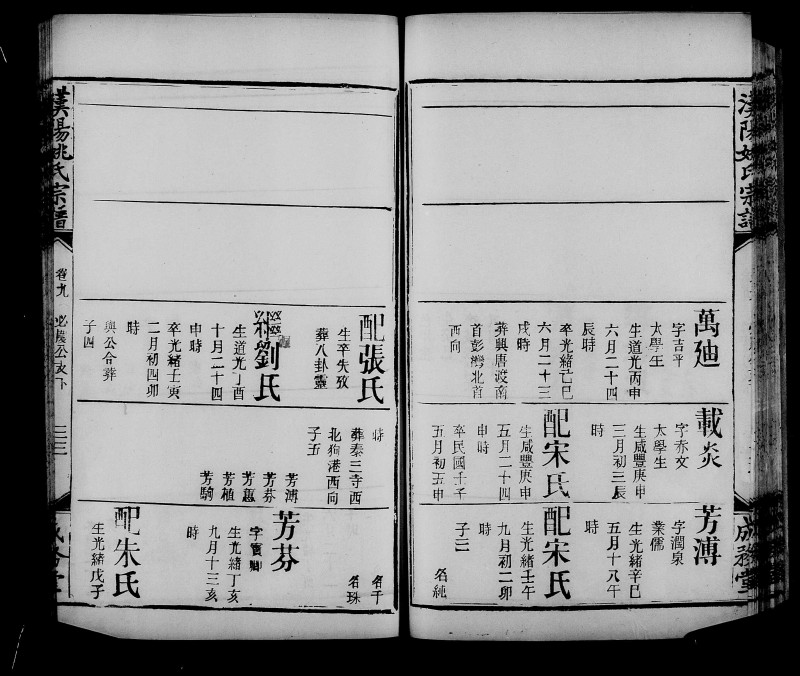 漢陽姚氏宗譜
成務堂
萬廸
字吉平
太學生
生道光丙申
六月二十四
辰時
卒光緒己巳
六月二十三
戌時
葬興唐渡南
首彭灣北首
西向
載炎
字亦文
太學生
生咸豐庚申
三月初三辰
時
配宋氏
生咸豐庚申
五月二十四
申時
卒民國壬子
五月初五申
芳溥
字潤泉
業儒
生光緒辛巳
五月十八午
時
配宋氏
生光緒壬午
九月初二卯
時
子三
名純
配張氏
生卒失攷
葬八卦靈
劉氏
生道光丁酉
十月二十四
申時
卒光緒壬寅
二月初四卯
時
與公合葬
子四
時
葬泰三寺西
北狗港西向
子五
芳溥
芳芬
芳蕙
芳植
芳駒
名千
名珠
芳芬
字賓卿
生光緒丁亥
九月十三亥
時
配朱氏
生光緒戊子
漢陽姚氏宗譜
卷九
三三
成務堂